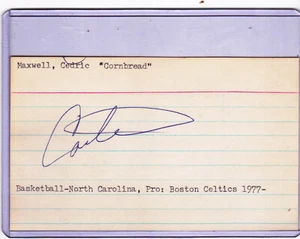 Maxwell, Cedric "Cornbread"
Basketball-North Carolina, Pro: Boston Celtics 1977-